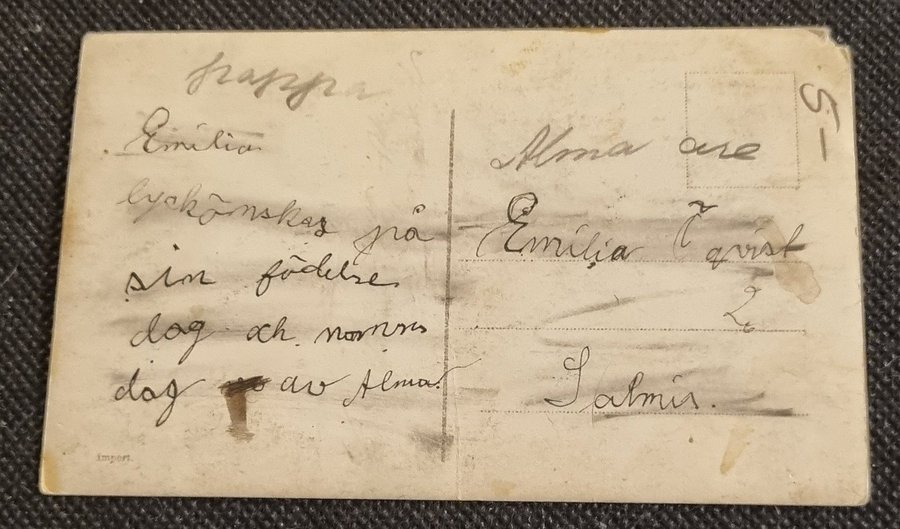 pappa
Emilia
lyckönskas på
sin födelse
dag och namns
dag av Alma
Import.
5-
Alma
Emilia Öqvist
2
Salmis.